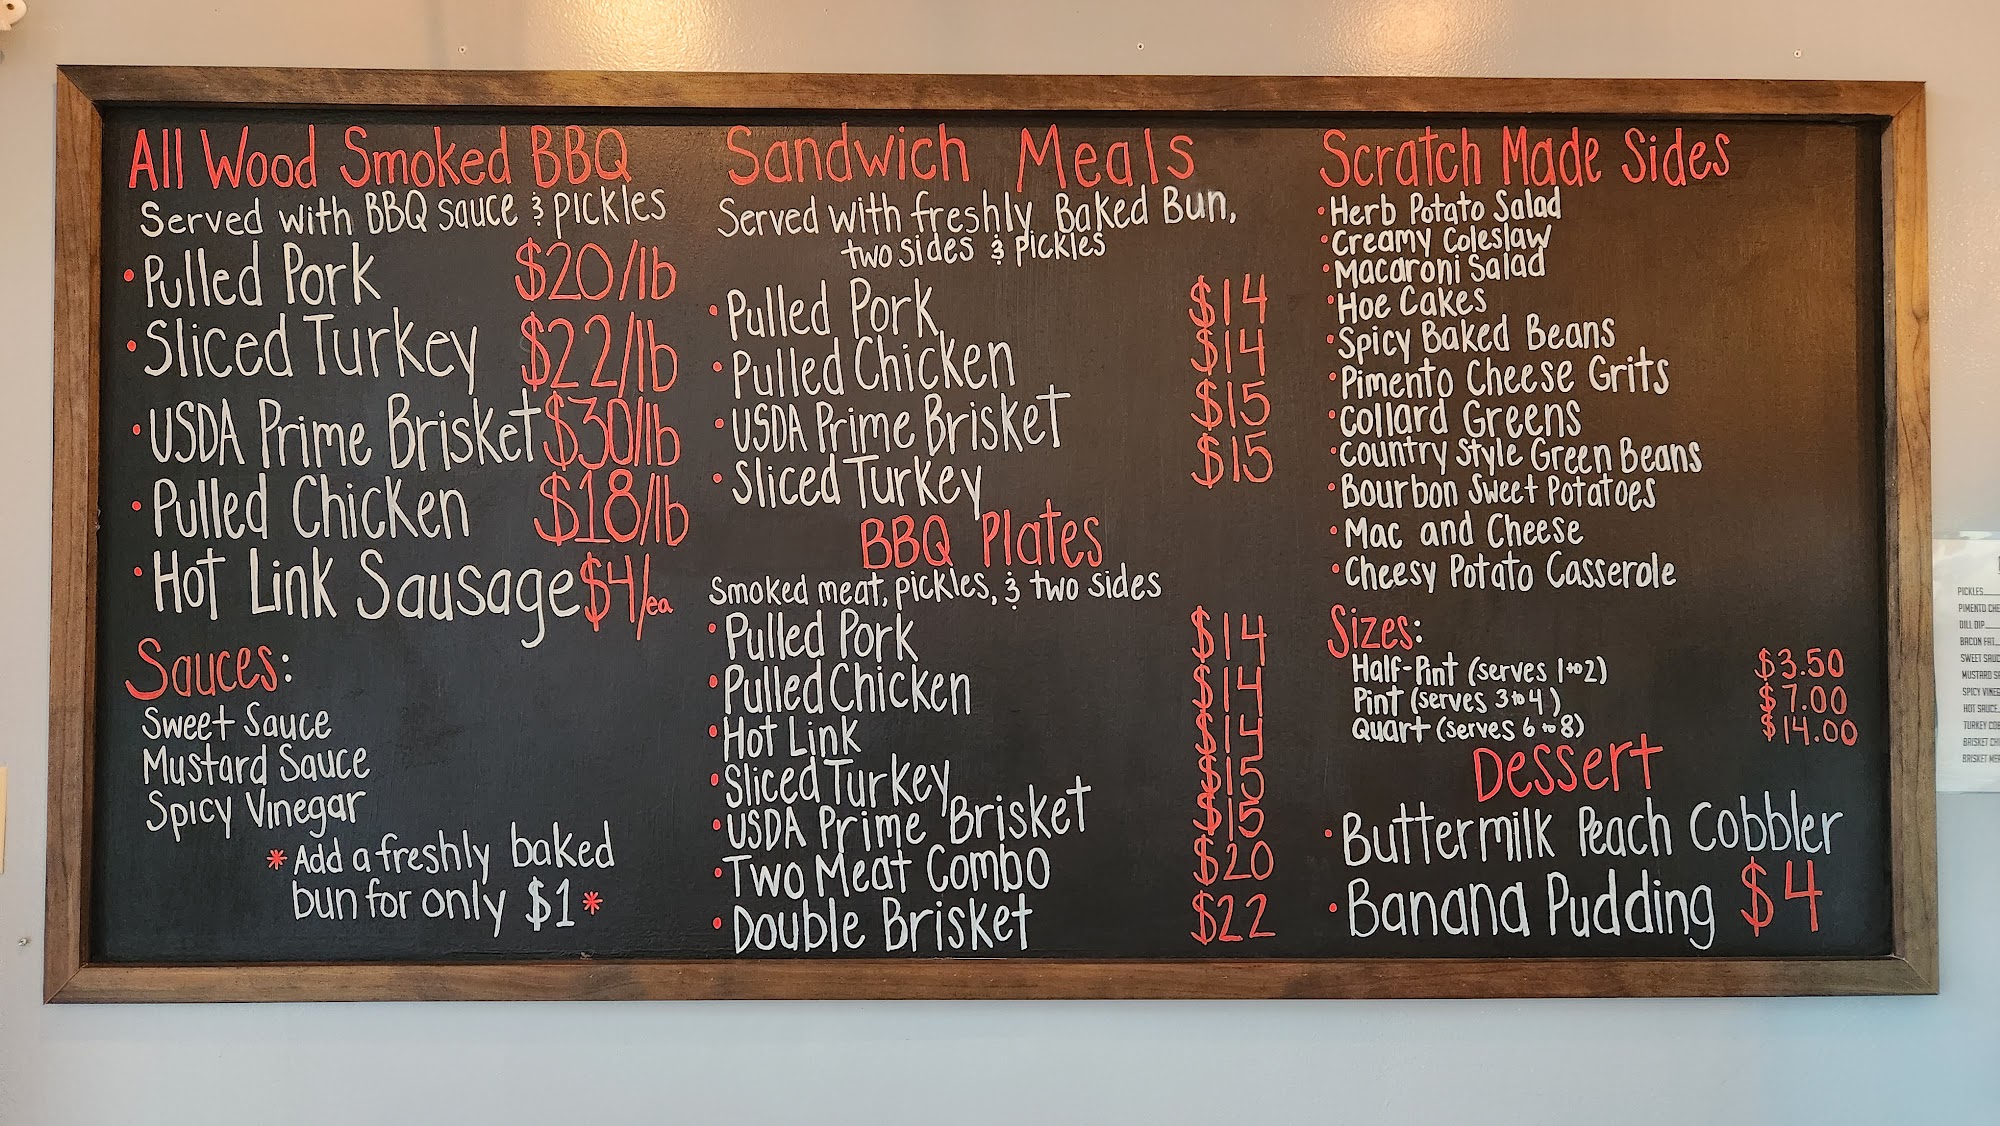 All Wood Smoked BBQ
Served with BBQ sauce & pickles
• Pulled Pork $20/lb
• Sliced Turkey $22/lb
• USDA Prime Brisket $30/lb
• Pulled Chicken $18/lb
• Hot Link Sausage $4/ea
Sauces:
Sweet Sauce
Mustard Sauce
Spicy Vinegar
* Add a freshly baked
bun for only $1 *
Sandwich Meals
Served with freshly Baked Bun,
two sides & pickles
• Pulled Pork $14
• Pulled Chicken $14
• USDA Prime Brisket $15
• Sliced Turkey $15
BBQ Plates
Smoked meat, pickles, & two sides
• Pulled Pork $14
• Pulled Chicken $14
• Hot Link $14
• Sliced Turkey $15
• USDA Prime Brisket $15
• Two Meat Combo $20
• Double Brisket $22
Scratch Made Sides
• Herb Potato Salad
• Creamy Coleslaw
• Macaroni Salad
• Hoe Cakes
• Spicy Baked Beans
• Pimento Cheese Grits
• Collard Greens
• Country Style Green Beans
• Bourbon Sweet Potatoes
• Mac and Cheese
• Cheesy Potato Casserole
Sizes:
Half-Pint (serves 1 to 2) $3.50
Pint (serves 3 to 4) $7.00
Quart (serves 6 to 8) $14.00
Dessert
• Buttermilk Peach Cobbler
• Banana Pudding $4
PICKLES
PIMENTO
DILL DIP
BACON FAT
SWEET
MUSTARD
SPICY
HOT SAUCE
TURKEY
BRISKET
BRISKET